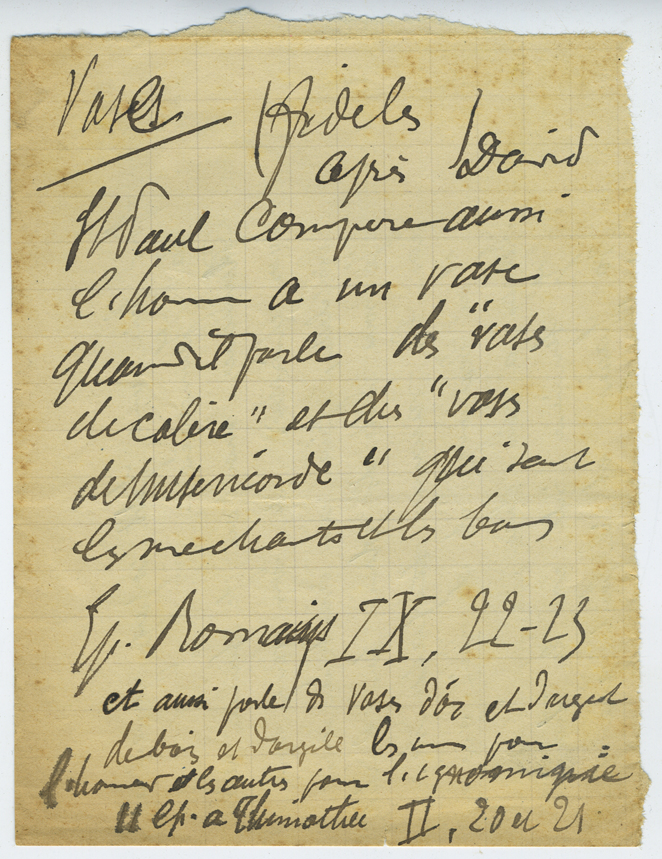 Vases (fideles
après) David
St Paul compare aussi
l'homme a un vase
quand il parle des "vases
de colère" et des "vases
de Misericorde" qui sont
les mechants et les bons
Ep. Romains IX, 22-23
et aussi parle de vases d'or et d'argent
de bois et d'argile les uns pour
l'honneur et les autres pour l'ignominie
II Ep. a Thimothée II, 20 et 21